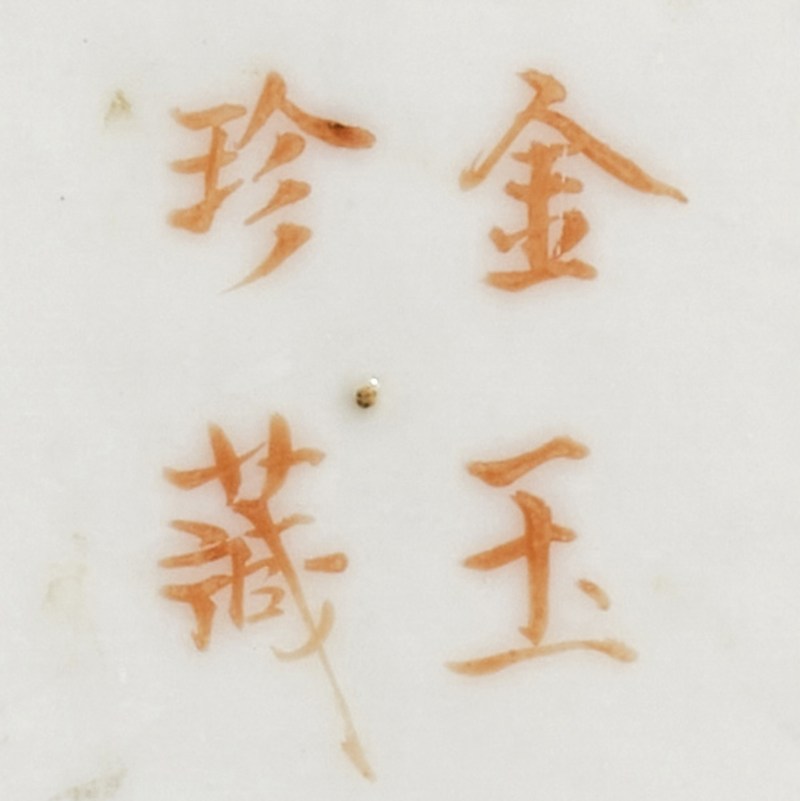 金玉
珍藏